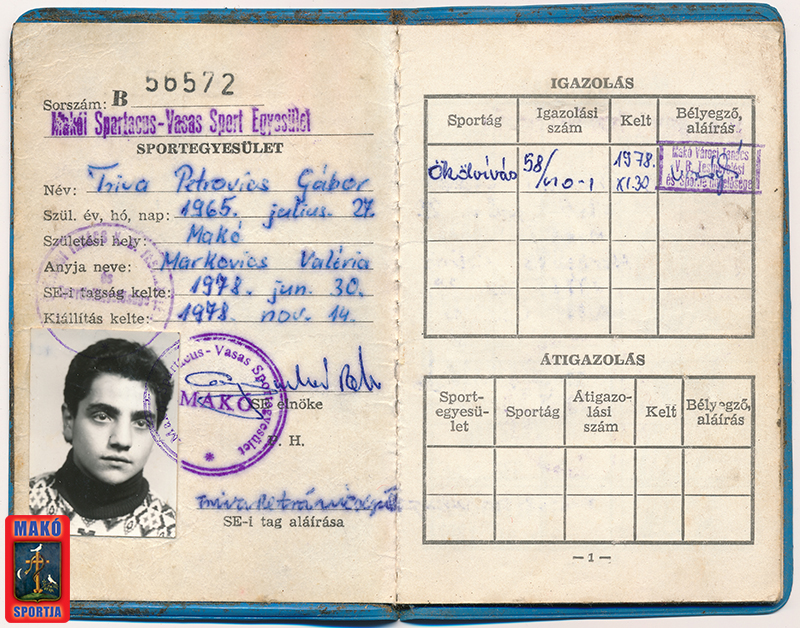 Sorszám: B 56572
Makói Spartacus-Vasas Sport Egyesület
SPORTEGYESÜLET
Név: Triva Petrovics Gábor
Szül. év, hó, nap: 1965. julius. 27.
Születési hely: Makó
Anyja neve: Markovics Valéria
SE-i tagság kelte: 1978. jun. 30.
Kiállítás kelte: 1978. nov. 14.
Spartacus-Vasas Sportegyesület
MAKÓ
SE elnöke
P. H.
SE-i tag aláírása
MAKÓ
SPORTJA
IGAZOLÁS
Sportág Igazolási szám Kelt Bélyegző, aláírás
Ökölvívás 58/ 1978. XI.30
Makó Városi Tanács
V. B. Testnevelési
és Sportfelügyelősége
ÁTIGAZOLÁS
Sport-egyesü-let Sportág Átigazo-lási szám Kelt Bélyegző, aláírás
— 1 —